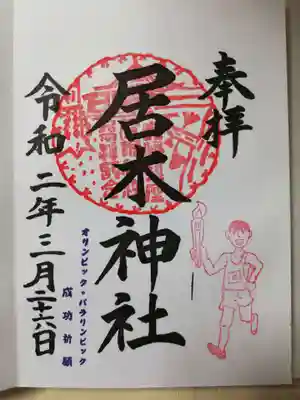 奉拝
居木神社
オリンピック・パラリンピック
成功祈願
令和二年三月二十六日